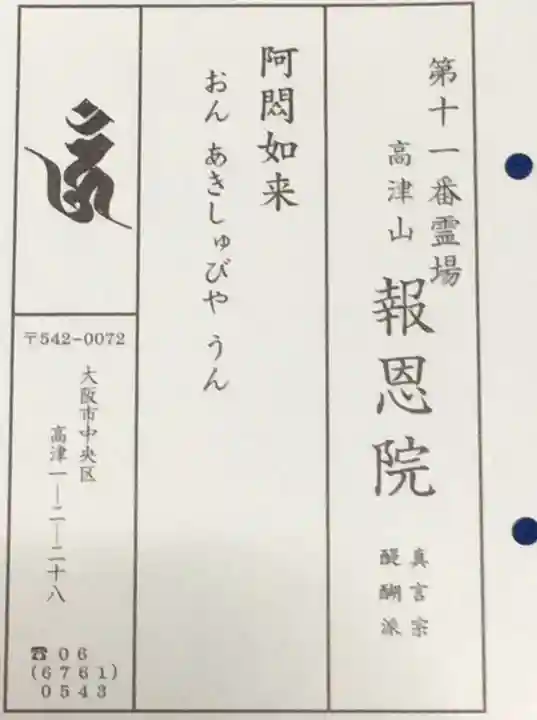 第十一番霊場
高津山 報恩院
真言宗
醍醐派
阿閦如来
おん あきしゅびや うん
〒542-0072
大阪市中央区
高津一―二―二十八
☎06
(6761)
0543